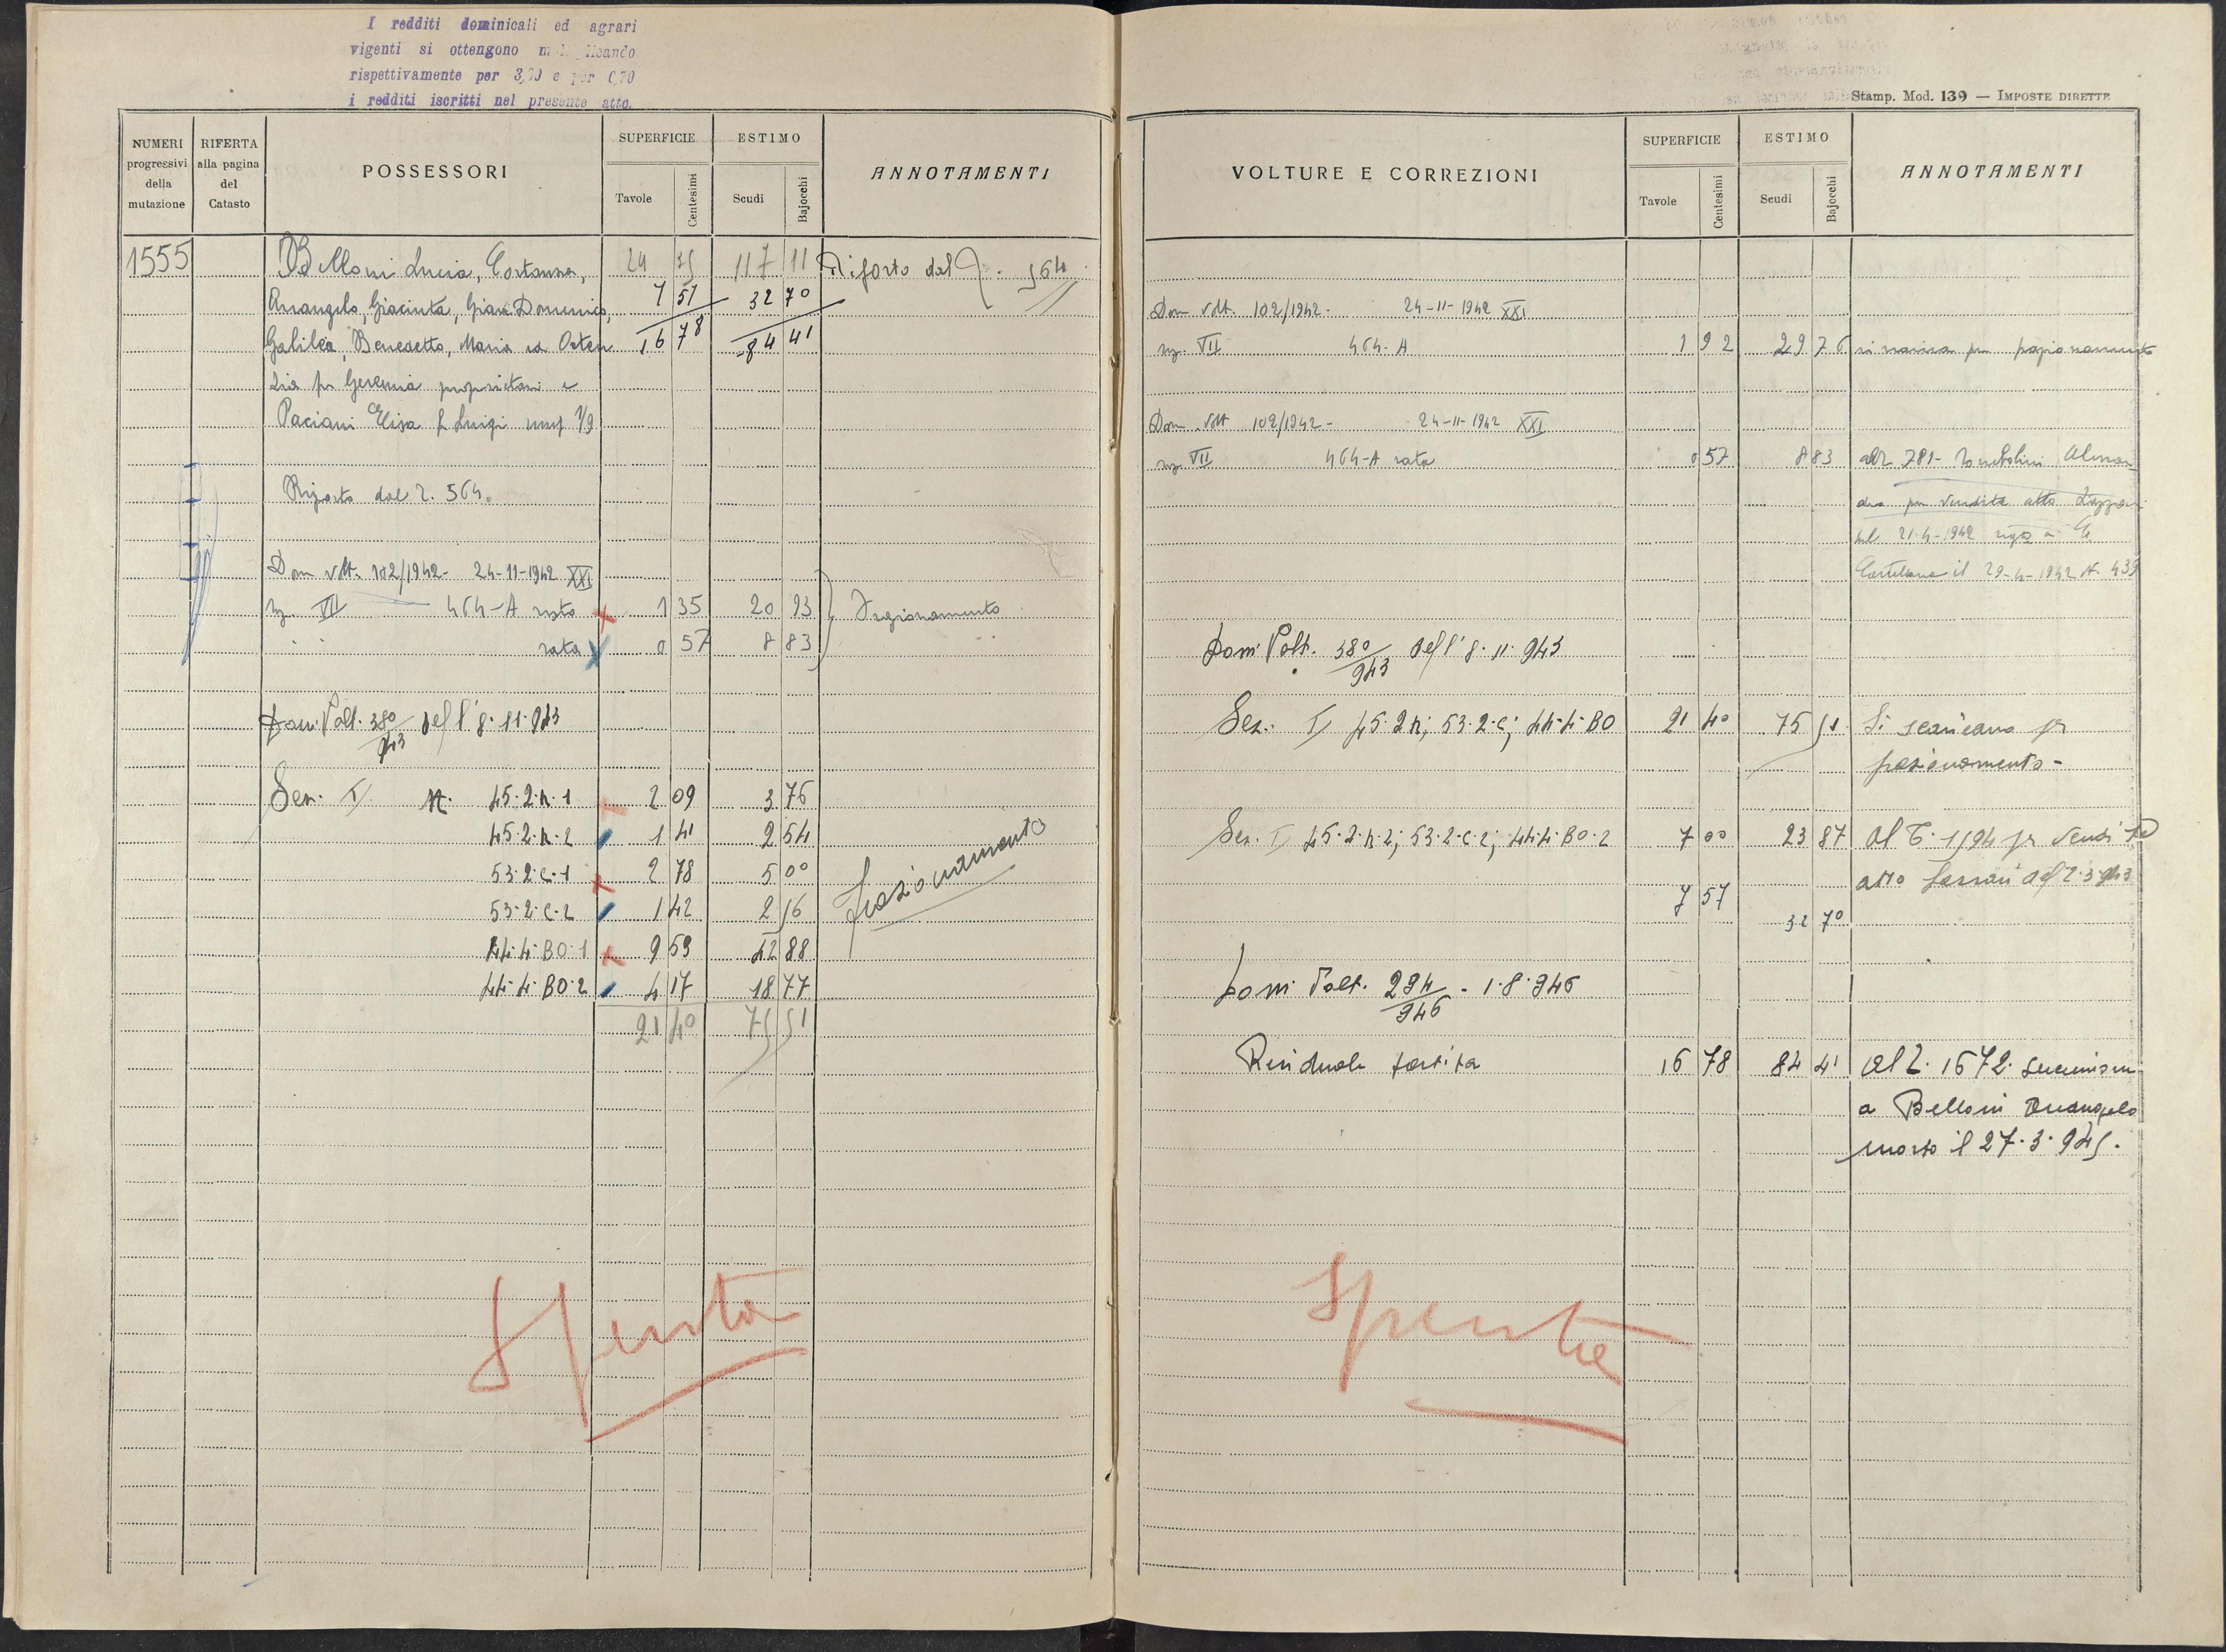 I redditi dominicali ed agrari
vigenti si ottengono
rispettivamente per e per 0,70
i redditi iscritti nel presente atto.
NUMERI progressivi della mutazione
RIFERTA alla pagina del Catasto
POSSESSORI
SUPERFICIE
Tavole
Centesimi
ESTIMO
Scudi
Bajocchi
ANNOTAMENTI
1555 Belloni Lucia, Costanza, 24 35 117 11 Riporto dal 564
Arcangelo, Giacinta, Gian Domenico, 7 57 32 70
Galilea, Benedetto, Maria ed Orten 16 78 84 41
zia fu Geremia proprietari e
Paciani Elisa f Luigi usuf 1/9
Riporto dal 2. 564.
Dom Volt. 102/1942 - 24-11-1942 XXI
sez. VII 464-A resto 1 35 20 93 Frazionamento
rata 0 57 8 83
Dom: Volt. 380/943 dell' 8.11.943
Sez. I N. 45.2.R.1 2 09 3 76
45.2.R.2 1 41 2 54
53.2.C.1 2 78 5 00 frazionamento
53.2.C.2 1 42 2 56
44.4.BO.1 9 53 42 88
44.4.BO.2 4 17 18 77
21 40 75 51
Spenta
Stamp. Mod. 139 — IMPOSTE DIRETTE
VOLTURE E CORREZIONI
SUPERFICIE
Tavole
Centesimi
ESTIMO
Scudi
Bajocchi
ANNOTAMENTI
Dom Volt. 102/1942 - 24-11-1942 XXI
sez. VII 464-A 1 92 29 76 si scarica per frazionamento
Dom Volt 102/1942 - 24-11-1942 XXI
sez. VII 464-A rata 0 57 8 83 alla 781- Alessan
dro per vendita atto
del 21-4-1942 a
il 29-4-1942 N. 439
Dom: Volt. 380/943 dell' 8.11.943
Sez. I 45.2.R; 53.2.C; 44.4.BO 21 40 75 51 Si scaricano per
frazionamento -
Sez. I 45.2.R.2; 53.2.C.2; 44.4.BO.2 7 00 23 87 al 1594 per vendita
atto del 2.3.943
7 57
32 70
Dom Volt. 294/946 - 1.8.946
Residuale partita 16 78 84 41 al 2. 1672. successione
a Belloni Arcangelo
morto il 27.3.945.
Spenta